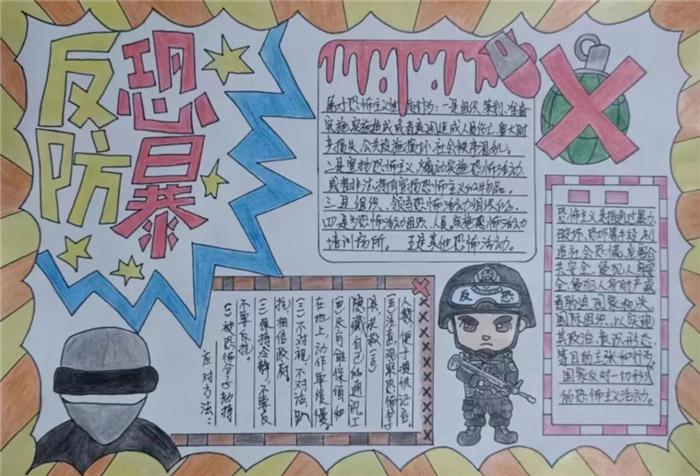 反恐
防暴
一是组织、策划、准备
实施、实施造成或者意图造成人员伤亡、重大财
产损失、公共设施损坏、社会秩序混乱。
二是宣扬恐怖主义,煽动实施恐怖活动,
或者非法持有宣扬恐怖主义的物品。
三是组织、领导恐怖活动组织的。
四是为恐怖活动组织、人员、实施恐怖活动
培训场所。 五是其他恐怖活动。
恐怖主义是指通过暴力
破坏、恐吓等手段,制
造社会恐慌、危害公
共安全、侵犯人身
侵犯人身财产或
者胁迫国家机关、
国际组织,以实现
其政治、意识形态
等目的主张和行为
国家反对一切形式
的恐怖主义活动。
应对方法:
(一)被恐怖分子劫持
不要反抗。
(二)保持冷静,不要反
抗,相信政府。
(三)不对视,不对话,趴
在地上,动作要缓慢
(四)尽可能保留和
隐藏自己的通讯工
具
(五)注意观察恐怖分子
人数,便于提供证言。
反恐